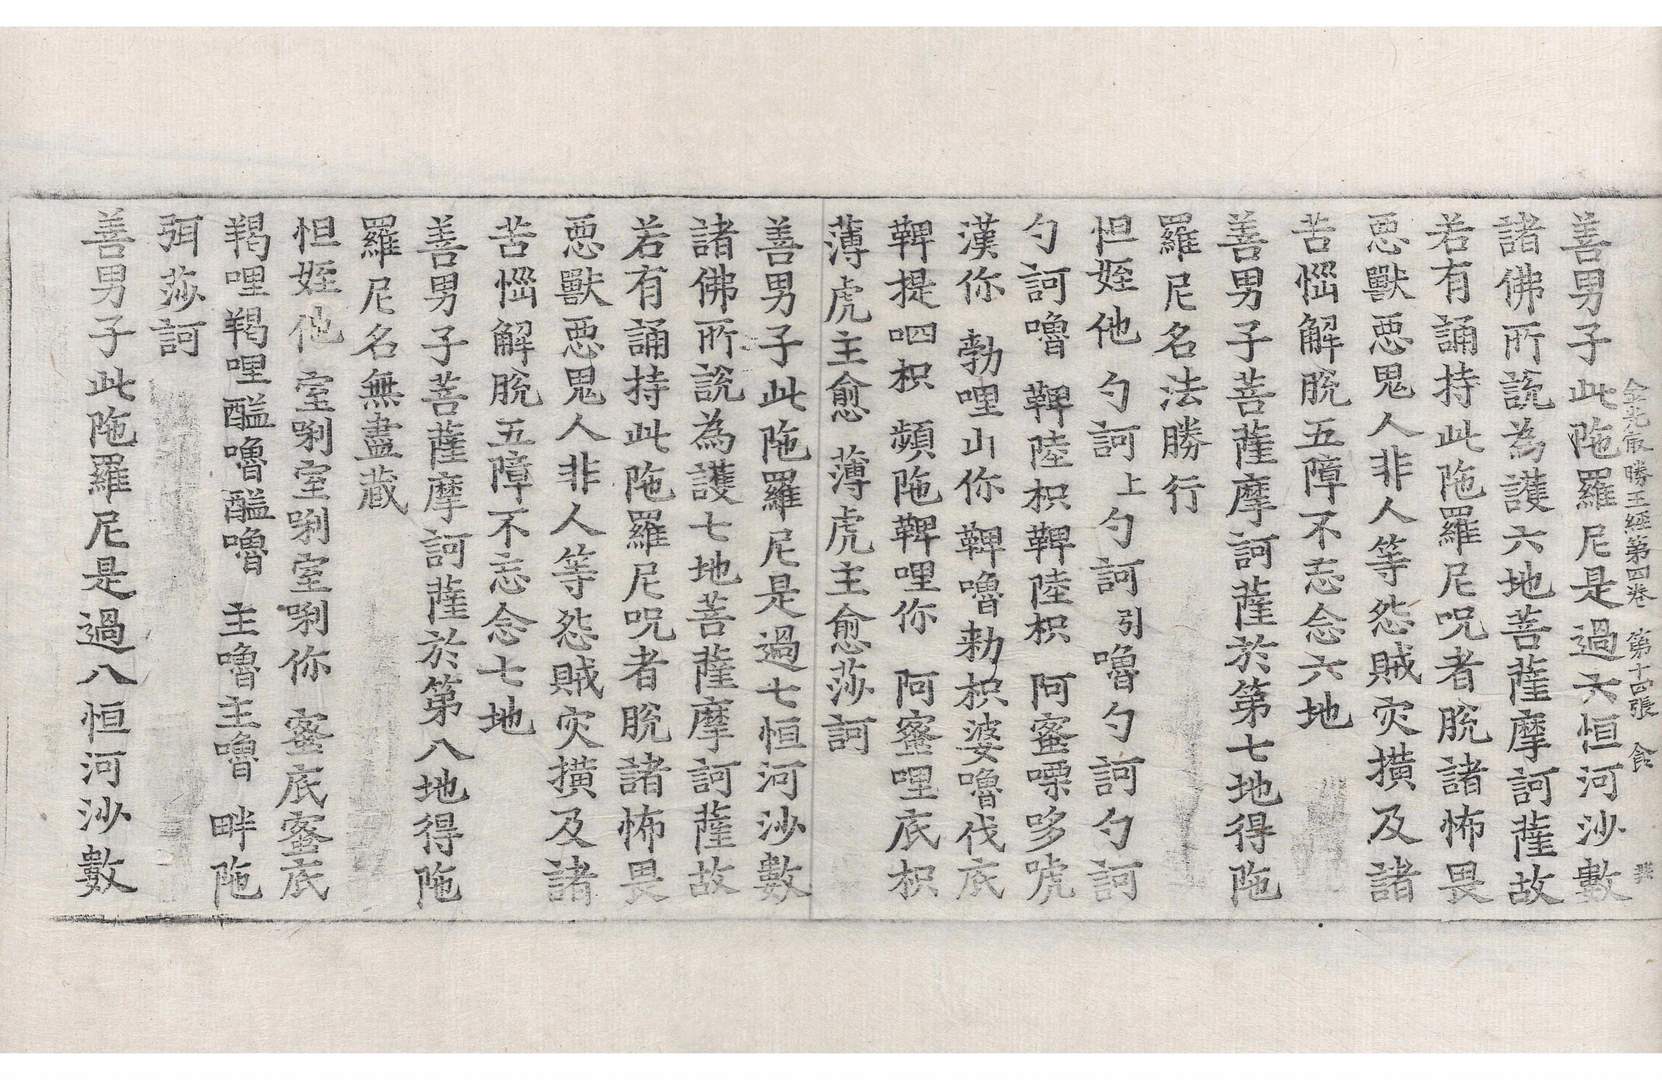 金光㝡勝王經第四卷 第十四張 食
善男子此陁羅尼是過六恒河沙數
諸佛所說為護六地菩薩摩訶薩故
若有誦持此陁羅尼呪者脫諸怖畏
惡獸惡鬼人非人等怨賊灾撗及諸
苦惱解脫五障不忘念六地
善男子菩薩摩訶薩於第七地得陁
羅尼名法勝行
怛姪他 勺訶上勺訶引嚕勺訶勺訶
勺訶嚕 鞞陸枳鞞陸枳 阿蜜㗚哆唬
漢你 勃哩山你 鞞嚕勑枳婆嚕伐底
鞞提呬枳 頻陁鞞哩你 阿蜜哩底枳
薄虎主愈 薄虎主愈莎訶
善男子此陁羅尼是過七恒河沙數
諸佛所說為護七地菩薩摩訶薩故
若有誦持此陁羅尼呪者脫諸怖畏
惡獸惡鬼人非人等怨賊灾撗及諸
苦惱解脫五障不忘念七地
善男子菩薩摩訶薩於第八地得陁
羅尼名無盡藏
怛姪他 室唎室唎室唎你 蜜底蜜底
羯哩羯哩醯嚕醯嚕 主嚕主嚕 畔陁
弭莎訶
善男子此陁羅尼是過八恒河沙數